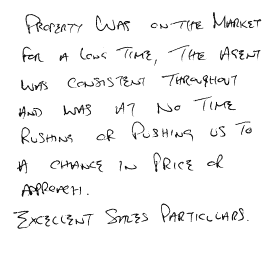 PROPERTY WAS ON THE MARKET
FOR A LONG TIME, THE AGENT
WAS CONSISTENT THROUGHOUT
AND WAS AT NO TIME
RUSHING OR PUSHING US TO
A CHANGE IN PRICE OR
APPROACH.
EXCELLENT SALES PARTICULARS.